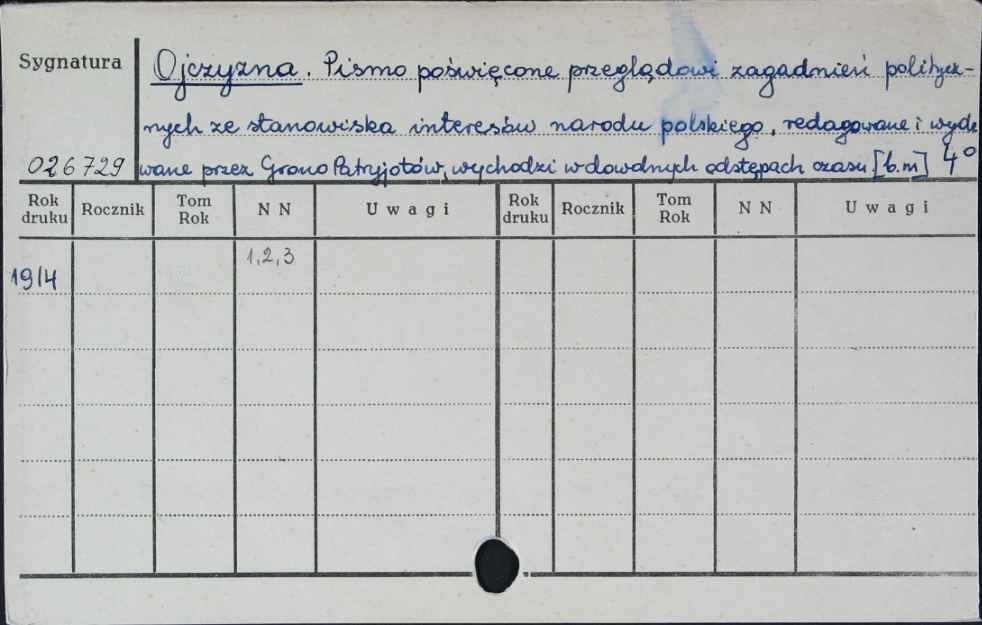 Sygnatura
Ojczyzna. Pismo poświęcone przeglądowi zagadnień politycz-
nych ze stanowiska interesów narodu polskiego, redagowane i wyda
wane przez Grono Patryjotów, wychodzi w dowolnych odstępach czasu [b.m] 4°
026729
Rok druku Rocznik Tom Rok NN Uwagi Rok druku Rocznik Tom Rok NN Uwagi
1914 1,2,3